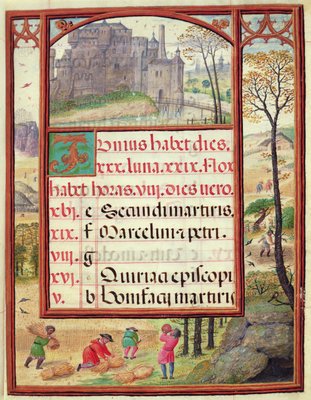 Iunius habet dies.
xxx. luna. xxix. Nox
habet horas. viij. dies vero.
e Secundi martiris.
xix. f Marcelini et petri.
viij. g
xvj. Quiriaci episcopi
v. b Bonifacij martiris